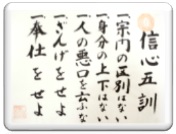 信心五訓
一宗門の区別はない
一身分の上下はない
一人の悪口を云ふな
一さんげをせよ
一奉仕をせよ